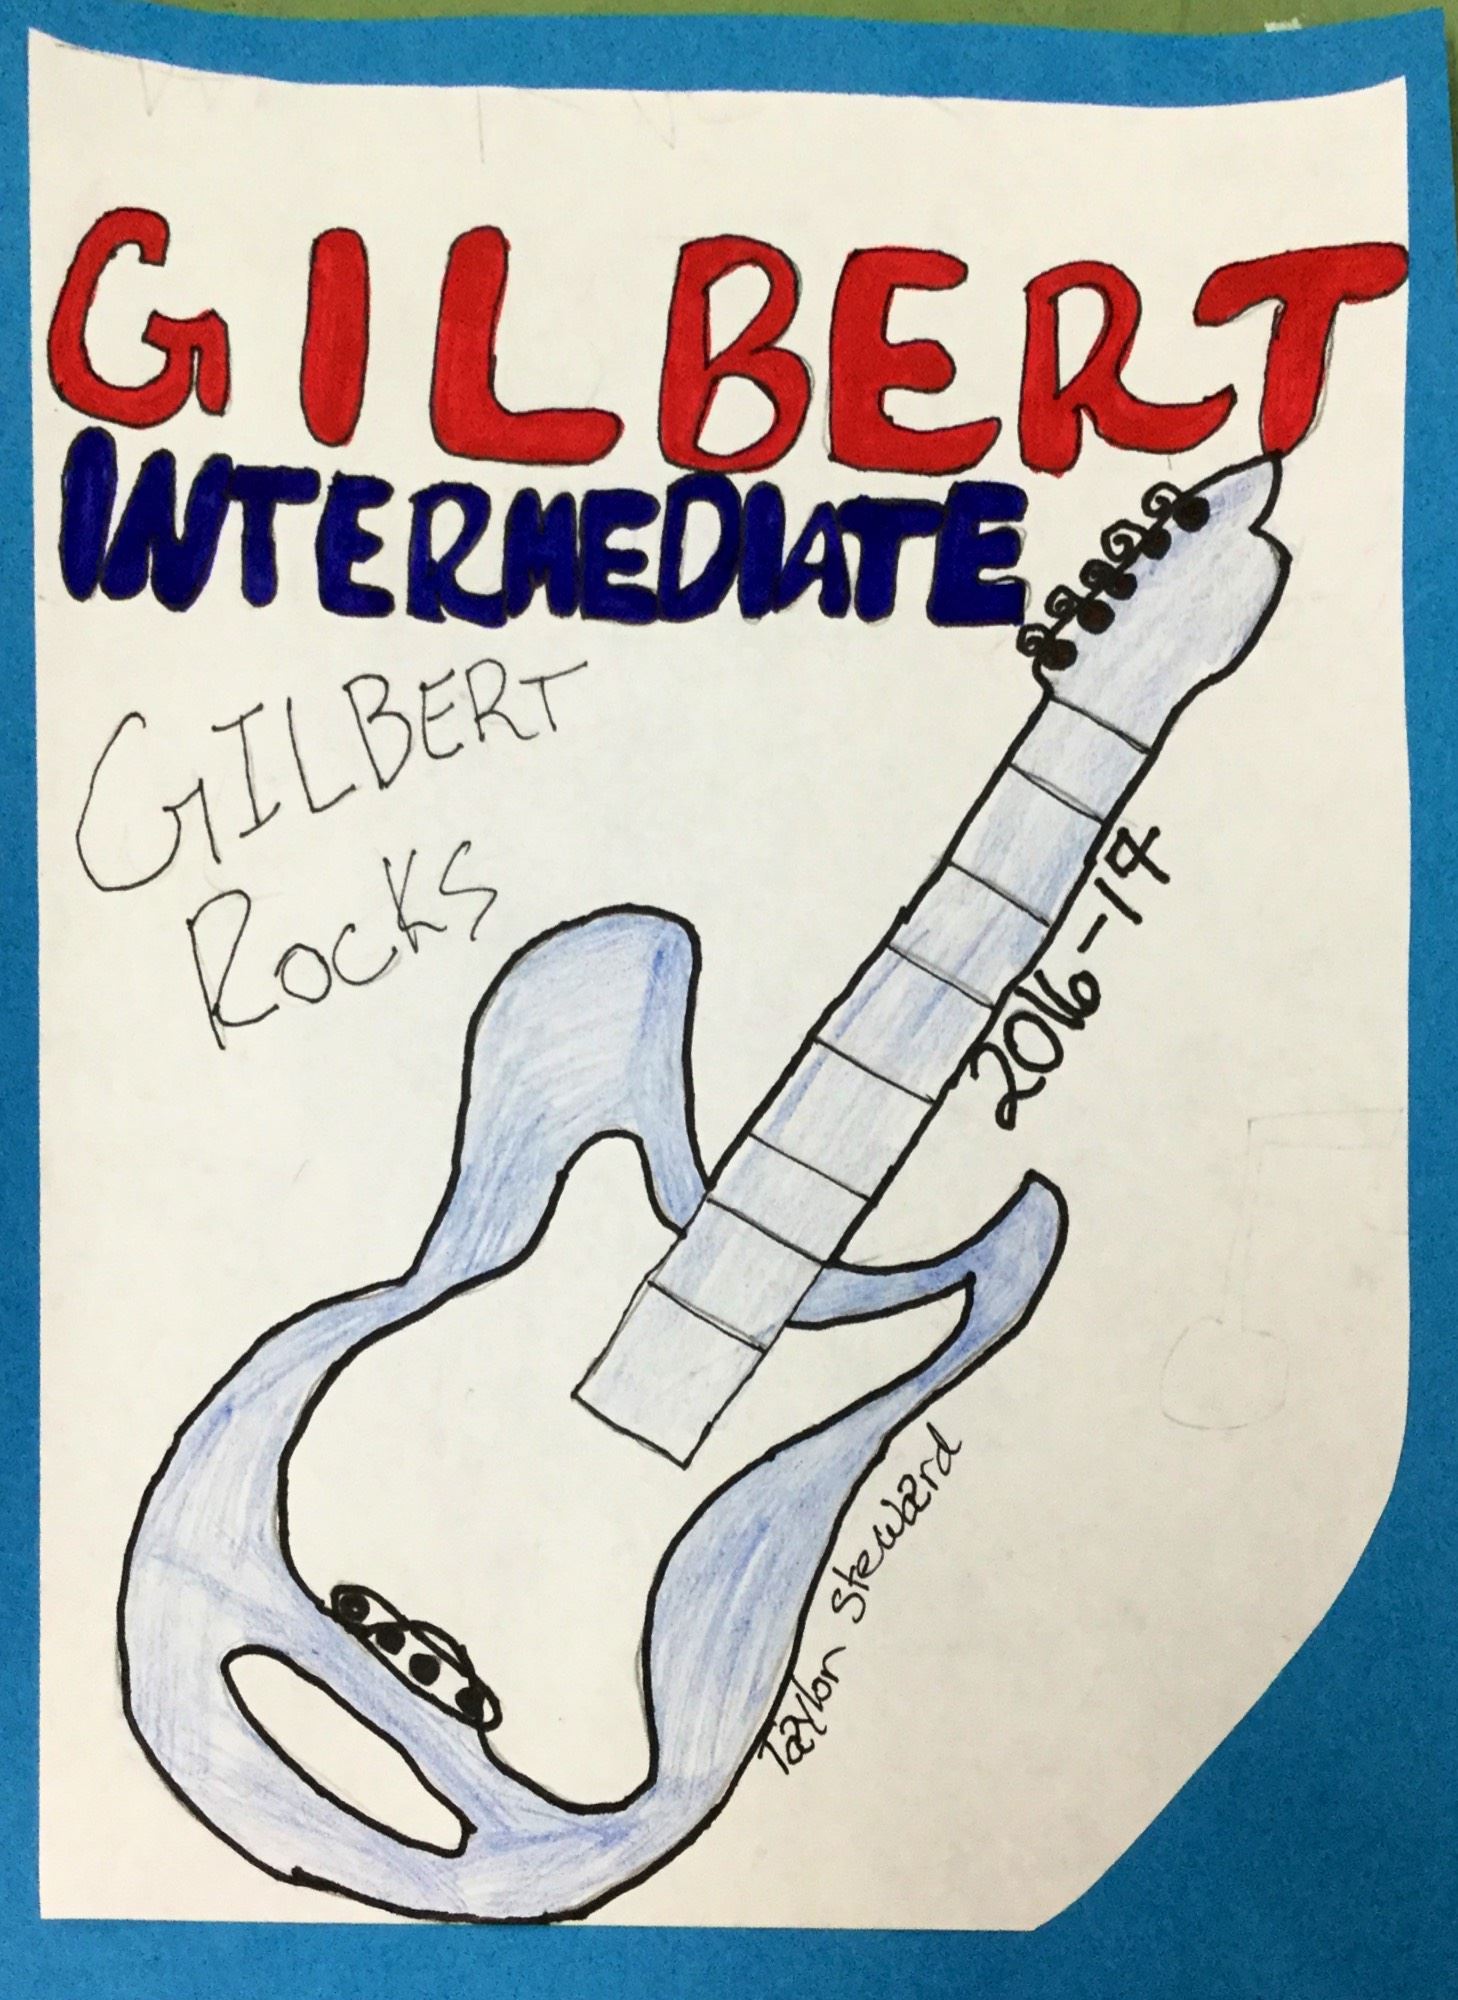 GILBERT
INTERMEDIATE
GILBERT
ROCKS
2016-17
Taylor Steward